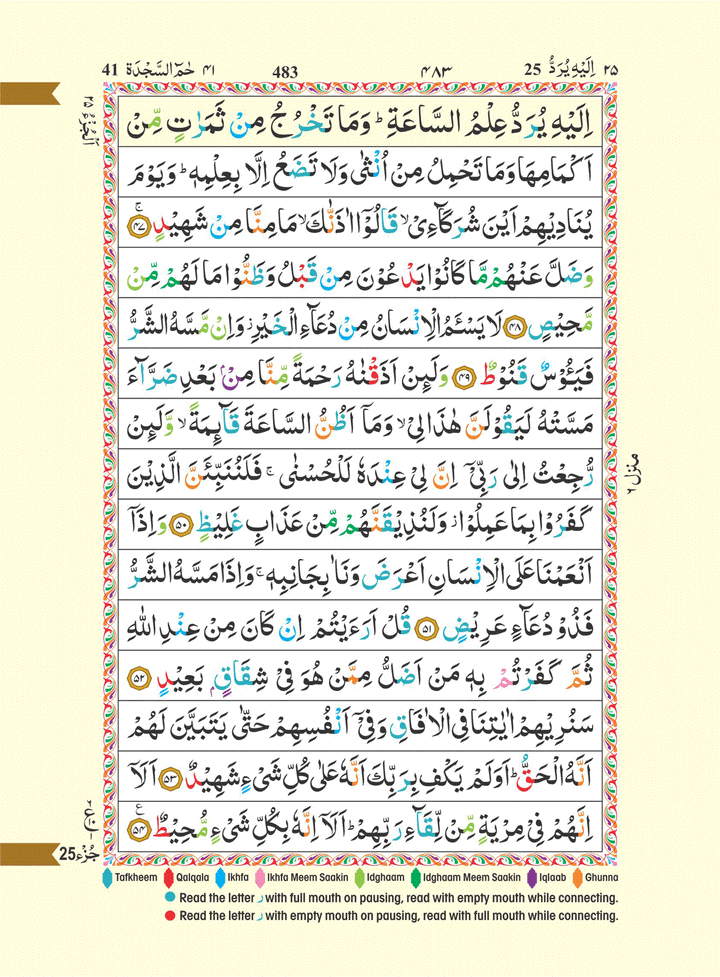 ٢٥ اِلَيْهِ يُرَدُّ 25 ٤٨٣ 483 ٤١ حٰمٓ السَّجْدَة 41
اِلَيْهِ يُرَدُّ عِلْمُ السَّاعَةِ ؕ وَمَا تَخْرُجُ مِنْ ثَمَرٰتٍ مِّنْ
اَكْمَامِهَا وَمَا تَحْمِلُ مِنْ اُنْثٰى وَلَا تَضَعُ اِلَّا بِعِلْمِهٖ ؕ وَيَوْمَ
يُنَادِيْهِمْ اَيْنَ شُرَكَآءِيْ ۙ قَالُوْٓا اٰذَنّٰكَ ۙ مَا مِنَّا مِنْ شَهِيْدٍ ۚ ﴿٤٧﴾
وَضَلَّ عَنْهُمْ مَّا كَانُوْا يَدْعُوْنَ مِنْ قَبْلُ وَظَنُّوْا مَا لَهُمْ مِّنْ
مَّحِيْصٍ ﴿٤٨﴾ لَا يَسْـَٔمُ الْاِنْسَانُ مِنْ دُعَآءِ الْخَيْرِ ؗ وَاِنْ مَّسَّهُ الشَّرُّ
فَيَـُٔوْسٌ قَنُوْطٌ ﴿٤٩﴾ وَلَئِنْ اَذَقْنٰهُ رَحْمَةً مِّنَّا مِنْۢ بَعْدِ ضَرَّآءَ
مَسَّتْهُ لَيَقُوْلَنَّ هٰذَا لِيْ ۙ وَمَآ اَظُنُّ السَّاعَةَ قَآئِمَةً ۙ وَّلَئِنْ
رُّجِعْتُ اِلٰى رَبِّيْٓ اِنَّ لِيْ عِنْدَهٗ لَلْحُسْنٰى ۚ فَلَنُنَبِّئَنَّ الَّذِيْنَ
كَفَرُوْا بِمَا عَمِلُوْا ؗ وَلَنُذِيْقَنَّهُمْ مِّنْ عَذَابٍ غَلِيْظٍ ﴿٥٠﴾ وَاِذَآ
اَنْعَمْنَا عَلَى الْاِنْسَانِ اَعْرَضَ وَنَاٰ بِجَانِبِهٖ ۚ وَاِذَا مَسَّهُ الشَّرُّ
فَذُوْ دُعَآءٍ عَرِيْضٍ ﴿٥١﴾ قُلْ اَرَءَيْتُمْ اِنْ كَانَ مِنْ عِنْدِ اللّٰهِ
ثُمَّ كَفَرْتُمْ بِهٖ مَنْ اَضَلُّ مِمَّنْ هُوَ فِيْ شِقَاقٍۭ بَعِيْدٍ ﴿٥٢﴾
سَنُرِيْهِمْ اٰيٰتِنَا فِي الْاٰفَاقِ وَفِيْٓ اَنْفُسِهِمْ حَتّٰى يَتَبَيَّنَ لَهُمْ
اَنَّهُ الْحَقُّ ؕ اَوَلَمْ يَكْفِ بِرَبِّكَ اَنَّهٗ عَلٰى كُلِّ شَيْءٍ شَهِيْدٌ ﴿٥٣﴾ اَلَآ
اِنَّهُمْ فِيْ مِرْيَةٍ مِّنْ لِّقَآءِ رَبِّهِمْ ؕ اَلَآ اِنَّهٗ بِكُلِّ شَيْءٍ مُّحِيْطٌ ﴿٥٤﴾
اَلْجُزْءُ ٢٥
منزل ٦
جُزْء 25
Tafkheem Qalqala Ikhfa Ikhfa Meem Saakin Idghaam Idghaam Meem Saakin Iqlaab Ghunna
Read the letter ر with full mouth on pausing, read with empty mouth while connecting.
Read the letter ر with empty mouth on pausing, read with full mouth while connecting.